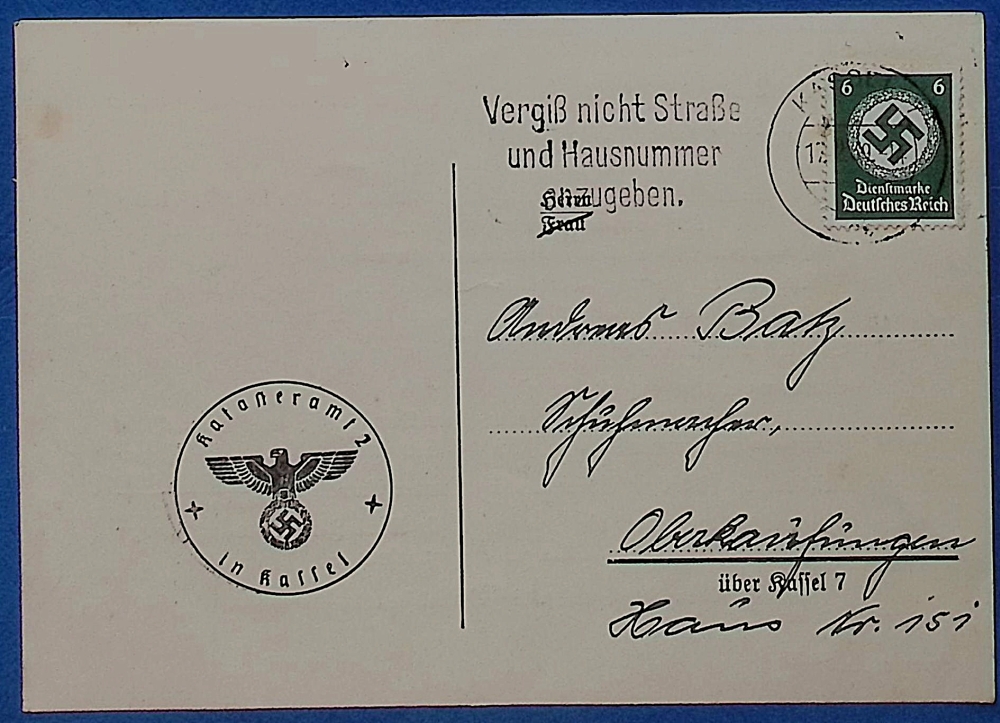 Vergiß nicht Straße
und Hausnummer
anzugeben.
6 6
Dienstmarke
Deutsches Reich
Herrn
Frau
Andreas Batz
Schuhmacher,
Oberkaufungen
über Kassel 7
Haus Nr. 151
Katasteramt 2
in Kassel